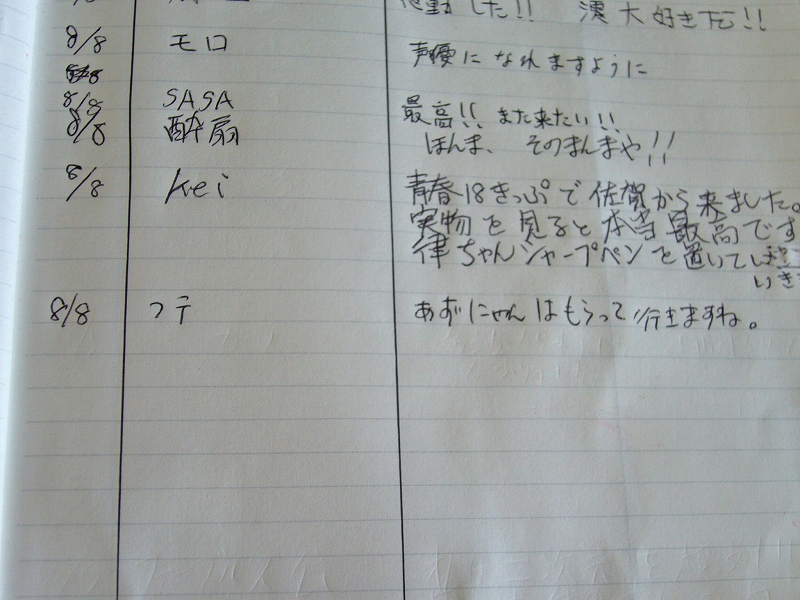 した!! 澪大好きだ!!
8/8 モロ 声優になれますように
8/8 SASA 最高!! また来たい!!
8/8 酔扇 ほんま、そのまんまや!!
8/8 Kei 青春18きっぷで佐賀から来ました。
実物を見ると本当最高です
律ちゃんシャープペンを置いて
いき
8/8 フテ あずにゃんはもらって行きますね。